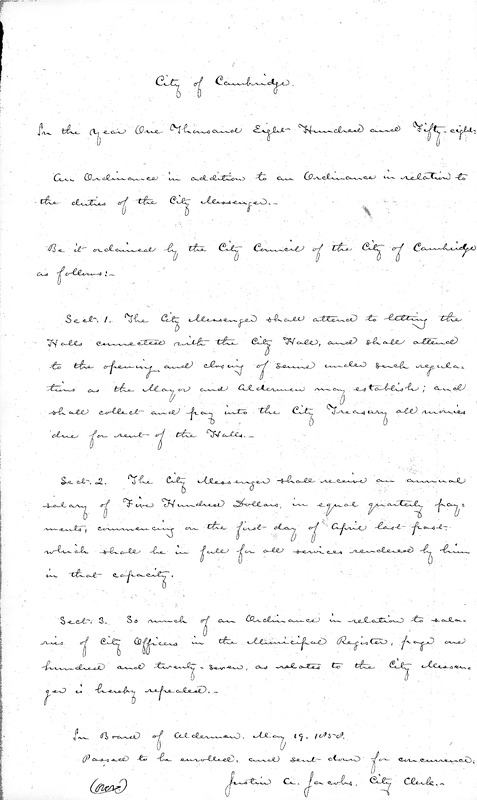 City of Cambridge.
In the year One Thousand Eight Hundred and Fifty-eight.
An Ordinance in addition to an Ordinance in relation to
the duties of the City Messenger.-
Be it ordained by the City Council of the City of Cambridge
as follows:-
Sect. 1. The City Messenger shall attend to letting the
Halls connected with the City Hall, and shall attend
to the opening and closing of same under such regula-
tions as the Mayor and Aldermen may establish; and
shall collect and pay into the City Treasury all monies
due for rent of the Halls.-
Sect. 2. The City Messenger shall receive an annual
salary of Five Hundred Dollars, in equal quarterly pay-
ments, commencing on the first day of April last past
which shall be in full for all services rendered by him
in that capacity.
Sect. 3. So much of an Ordinance in relation to sala-
ries of City Officers in the Municipal Register, page one
hundred and twenty-seven, as relates to the City Messen-
ger is hereby repealed.-
In Board of Aldermen. May 19, 1858.
Passed to be enrolled, and sent down for concurrence.
(over) Justin A. Jacobs, City Clerk.-